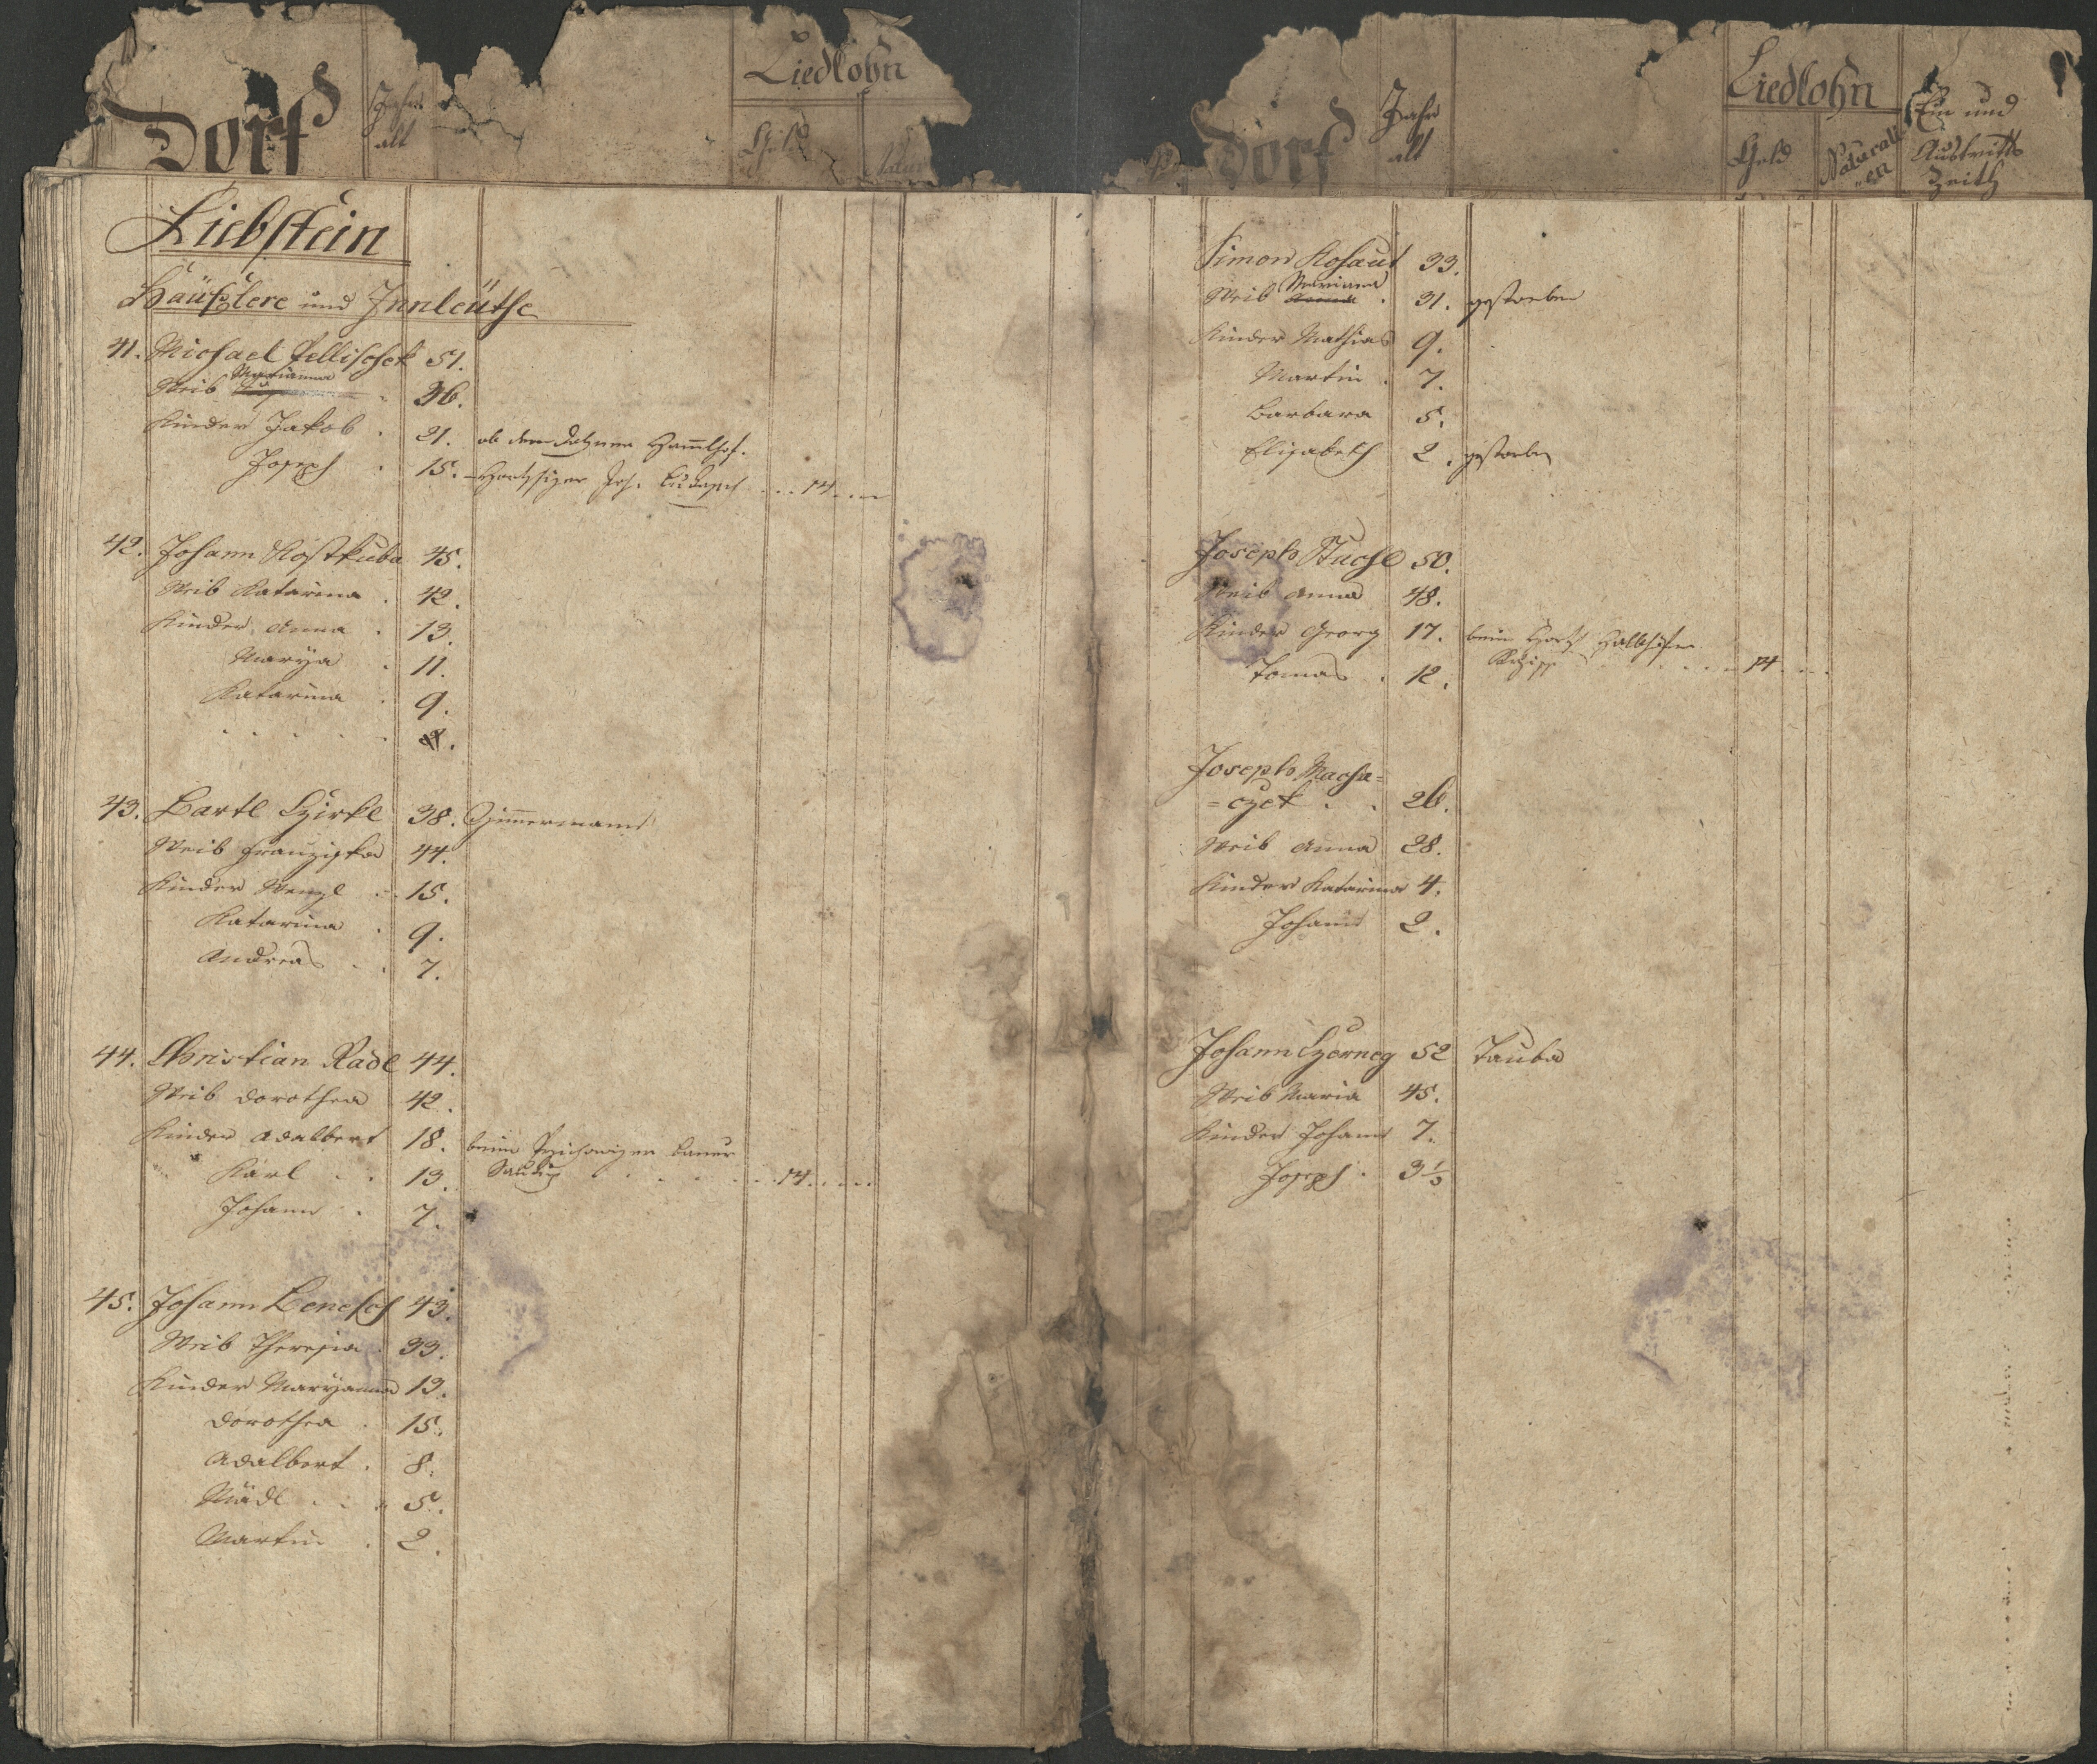 Dorf
Jahr
alt
Liedlohn
Geld
Liebstein
Häußlere und Innleüthe
41. Michael Pellischek 51.
Weib Marianna 36.
Kinder Jakob . 21.
Joseph . 15. 14
42. Johann Kostkuba 45.
Weib Katarina . 42.
Kinder Anna . 13.
Marya . 11.
Katarina . 9.
43. Bartl Czirkl 38. Zimmermann
Weib Franziska 44.
Kinder Wenzl 15.
Katarina . 9.
Andreas . . 7.
44. Christian Radl 44.
Weib Dorothea 42.
Kinder Adalbert 18. beim Bauer
Karl . . 13. 14
Johann . 7.
45. Johann Benesch 43.
Weib Theresia . 33.
Kinder Maryanna 13.
Dorothea . 15.
Adalbert . 8.
Mädl . . 5.
Martin . 2.
Dorf
Jahr
alt
Liedlohn
Geld
Naturali
=en
Ein und
Austritts
Zeith
Simon Kohaut 33.
Weib Mariana . 31. gestorben
Kinder Mathias 9.
Martin . 7.
Barbara 5.
Elisabeth 2. gestorben
Joseph 50.
Weib Anna 48.
Kinder Georg 17. beim
Tomas . 12. 14
Joseph Macha=
=czek . . 26.
Weib Anna 28.
Kinder Katarina 4.
Johann 2.
Johann Czerneg 52 Tauba
Weib Maria 45.
Kinder Johann 7.
Joseph . 3 1/3